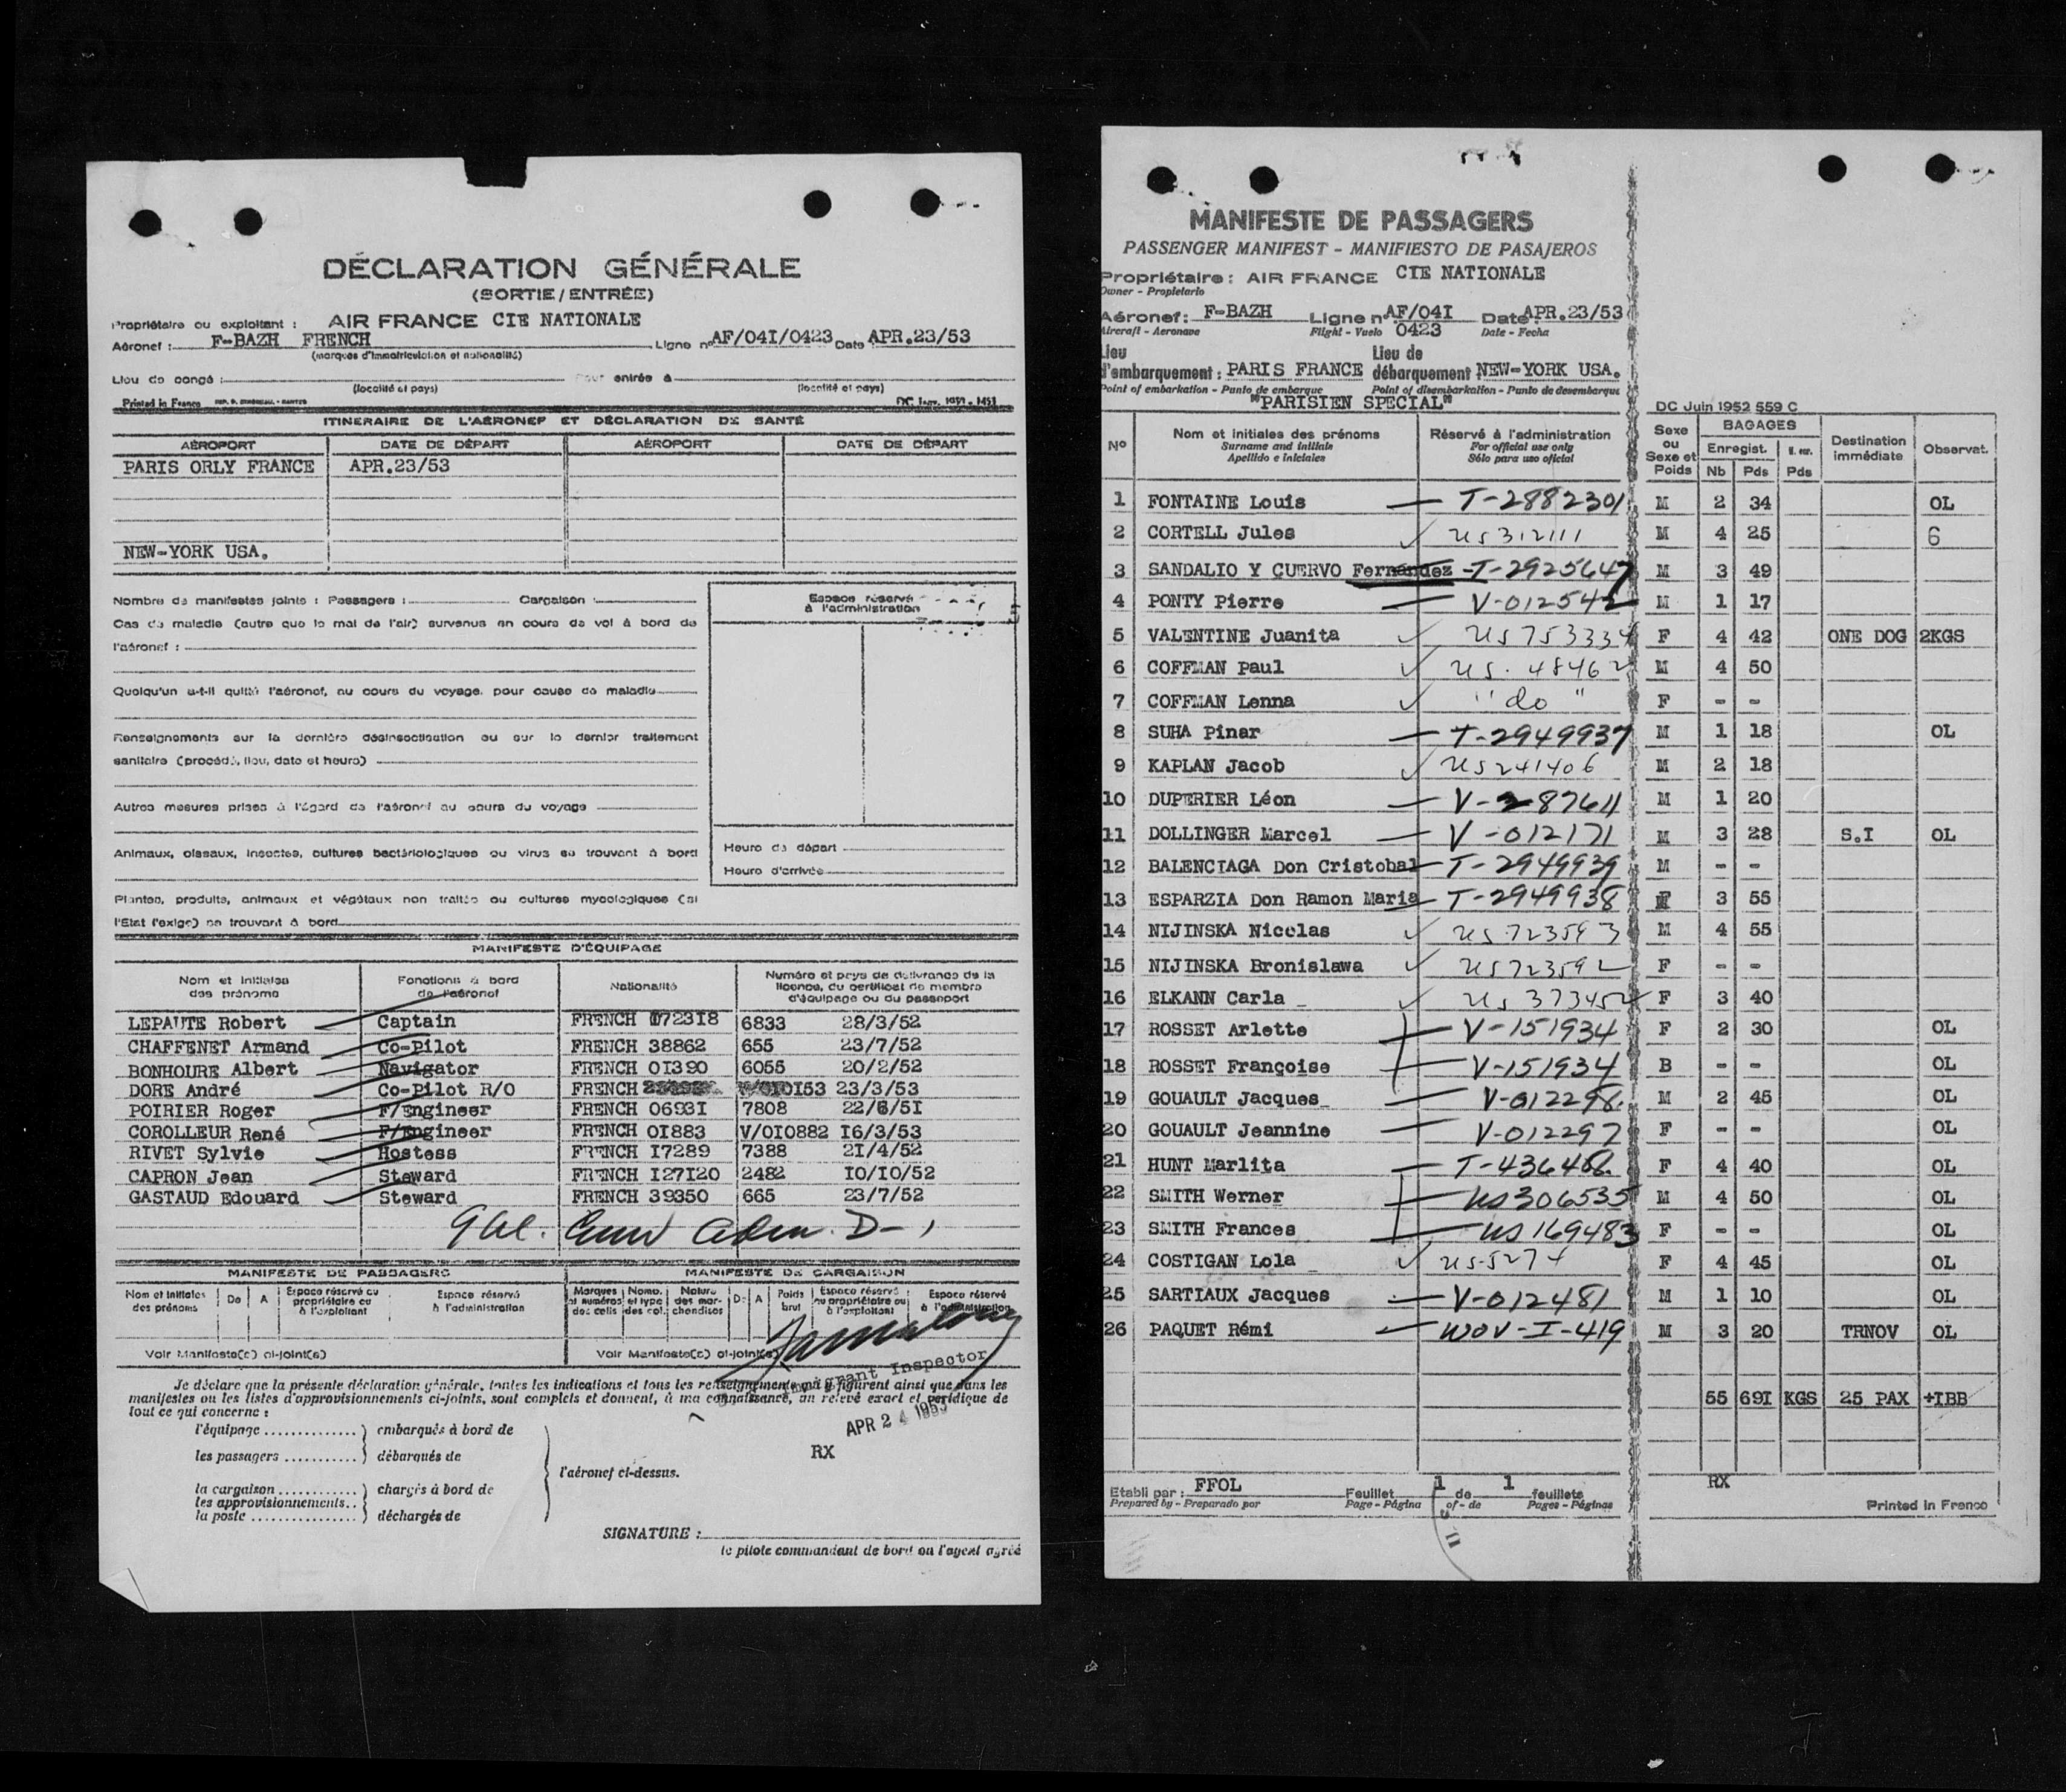 DÉCLARATION GÉNÉRALE
(SORTIE/ENTRÉE)
Propriétaire ou exploitant : AIR FRANCE CIE NATIONALE
Aéronef : F-BAZH FRENCH Ligne nº AF/04I/0423 Date APR.23/53
(marques d'immatriculation et nationalité)
Lieu de congé : Pour entrée à
(localité et pays) (localité et pays)
Printed in France
ITINERAIRE DE L'AÉRONEF ET DÉCLARATION DE SANTÉ
AÉROPORT DATE DE DÉPART AÉROPORT DATE DE DÉPART
PARIS ORLY FRANCE APR.23/53
NEW-YORK USA.
Nombre de manifestes joints : Passagers : Cargaison :
Cas de maladie (autre que le mal de l'air) survenus en cours de vol à bord de
l'aéronef :
Quelqu'un a-t-il quitté l'aéronef, au cours du voyage, pour cause de maladie
Renseignements sur la dernière désinsectisation ou sur le dernier traitement
sanitaire (procédé, lieu, date et heure)
Autres mesures prises à l'égard de l'aéronef au cours du voyage
Animaux, oiseaux, insectes, cultures bactériologiques ou virus se trouvant à bord
Plantes, produits, animaux et végétaux non traités ou cultures mycologiques (si
l'État l'exige) se trouvant à bord
Espace réservé
à l'administration
Heure de départ
Heure d'arrivée
MANIFESTE D'ÉQUIPAGE
Nom et initiales des prénoms Fonctions à bord de l'aéronef Nationalité Numéro et pays de délivrance de la licence, du certificat de membre d'équipage ou du passeport
LEPAUTE Robert Captain FRENCH 072318 6833 28/3/52
CHAFFENET Armand Co-Pilot FRENCH 38862 655 23/7/52
BONHOURE Albert Navigator FRENCH 0I390 6055 20/2/52
DORE André Co-Pilot R/O FRENCH 23/3/53
POIRIER Roger F/Engineer FRENCH 0693I 7808 22/8/5I
COROLLEUR René F/Engineer FRENCH 0I883 V/0I0882 I6/3/53
RIVET Sylvie Hostess FRENCH I7289 7388 2I/4/52
CAPRON Jean Steward FRENCH I27I20 2482 I0/I0/52
GASTAUD Edouard Steward FRENCH 39350 665 23/7/52
MANIFESTE DE PASSAGERS MANIFESTE DE CARGAISON
Nom et initiales des prénoms De A Espace réservé au propriétaire ou à l'exploitant Espace réservé à l'administration Marques et numéros des colis Nomb. et type des col. Nature des marchandises De A Poids brut Espace réservé au propriétaire ou à l'exploitant Espace réservé à l'administration
Voir Manifeste(s) ci-joint(s) Voir Manifeste(s) ci-joint(s)
Immigrant Inspector
Je déclare que la présente déclaration générale, toutes les indications et tous les renseignements qui y figurent ainsi que dans les
manifestes ou les listes d'approvisionnements ci-joints, sont complets et donnent, à ma connaissance, un relevé exact et véridique de
tout ce qui concerne :
APR 24 1953
l'équipage .............. embarqués à bord de
RX
les passagers ........... débarqués de
l'aéronef ci-dessus.
la cargaison ............ chargés à bord de
les approvisionnements..
la poste ................ déchargés de
SIGNATURE :
le pilote commandant de bord ou l'agent agréé
MANIFESTE DE PASSAGERS
PASSENGER MANIFEST - MANIFIESTO DE PASAJEROS
Propriétaire : AIR FRANCE CIE NATIONALE
Owner - Propietario
Aéronef : F-BAZH Ligne nº AF/04I 0423 Date APR.23/53
Aircraft - Aeronave Flight - Vuelo Date - Fecha
Lieu d'embarquement : PARIS FRANCE Lieu de débarquement NEW-YORK USA.
Point of embarkation - Punto de embarque Point of disembarkation - Punto de desembarque
"PARISIEN SPECIAL"
DC Juin 1952 559 C
Nº Nom et initiales des prénoms Réservé à l'administration Sexe ou Sexe et Poids BAGAGES Enregist. Nb Pds Pds Destination immédiate Observat.
Surname and initials For official use only
Apellido e iniciales Sólo para uso oficial
1 FONTAINE Louis T-2882301 M 2 34 OL
2 CORTELL Jules US312111 M 4 25 6
3 SANDALIO Y CUERVO Fernandez T-2925647 M 3 49
4 PONTY Pierre V-012542 M 1 17
5 VALENTINE Juanita US753334 F 4 42 ONE DOG 2KGS
6 COFFMAN Paul US. 48462 M 4 50
7 COFFMAN Lenna "do" F - -
8 SUHA Pinar T-2949937 M 1 18 OL
9 KAPLAN Jacob US241406 M 2 18
10 DUPERIER Léon V-287611 M 1 20
11 DOLLINGER Marcel V-012171 M 3 28 S.I OL
12 BALENCIAGA Don Cristobal T-2949939 M - -
13 ESPARZIA Don Ramon Maria T-2949938 3 55
14 NIJINSKA Nicolas US723593 M 4 55
15 NIJINSKA Bronislawa US723592 F - -
16 ELKANN Carla US373452 F 3 40
17 ROSSET Arlette V-151934 F 2 30 OL
18 ROSSET Françoise V-151934 B - - OL
19 GOUAULT Jacques V-012298 M 2 45 OL
20 GOUAULT Jeannine V-012297 F - - OL
21 HUNT Marlita T-436466 F 4 40 OL
22 SMITH Werner US306535 M 4 50 OL
23 SMITH Frances US169483 F - - OL
24 COSTIGAN Lola US-5274 F 4 45 OL
25 SARTIAUX Jacques V-012481 M 1 10 OL
26 PAQUET Rémi WOV-I-419 M 3 20 TRNOV OL
55 69I KGS 25 PAX +IBB
Etabli par : FFOL Feuillet 1 de 1 feuillets RX
Prepared by - Preparado por Page - Página of - de Pages - Páginas Printed in France